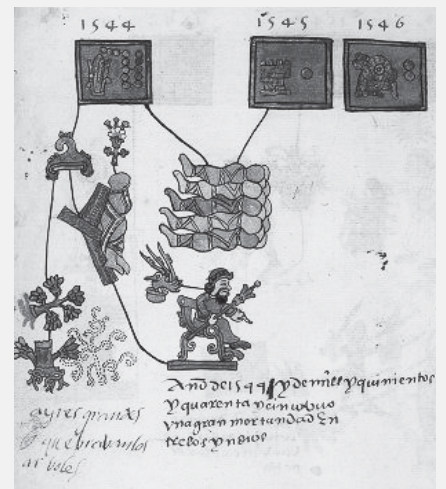 1544 1545 1546
Año de 1544 y de mill y quinientos
y quarenta y cinco uuo
una gran mortandad en
tre los yndios
ayres grandes
que